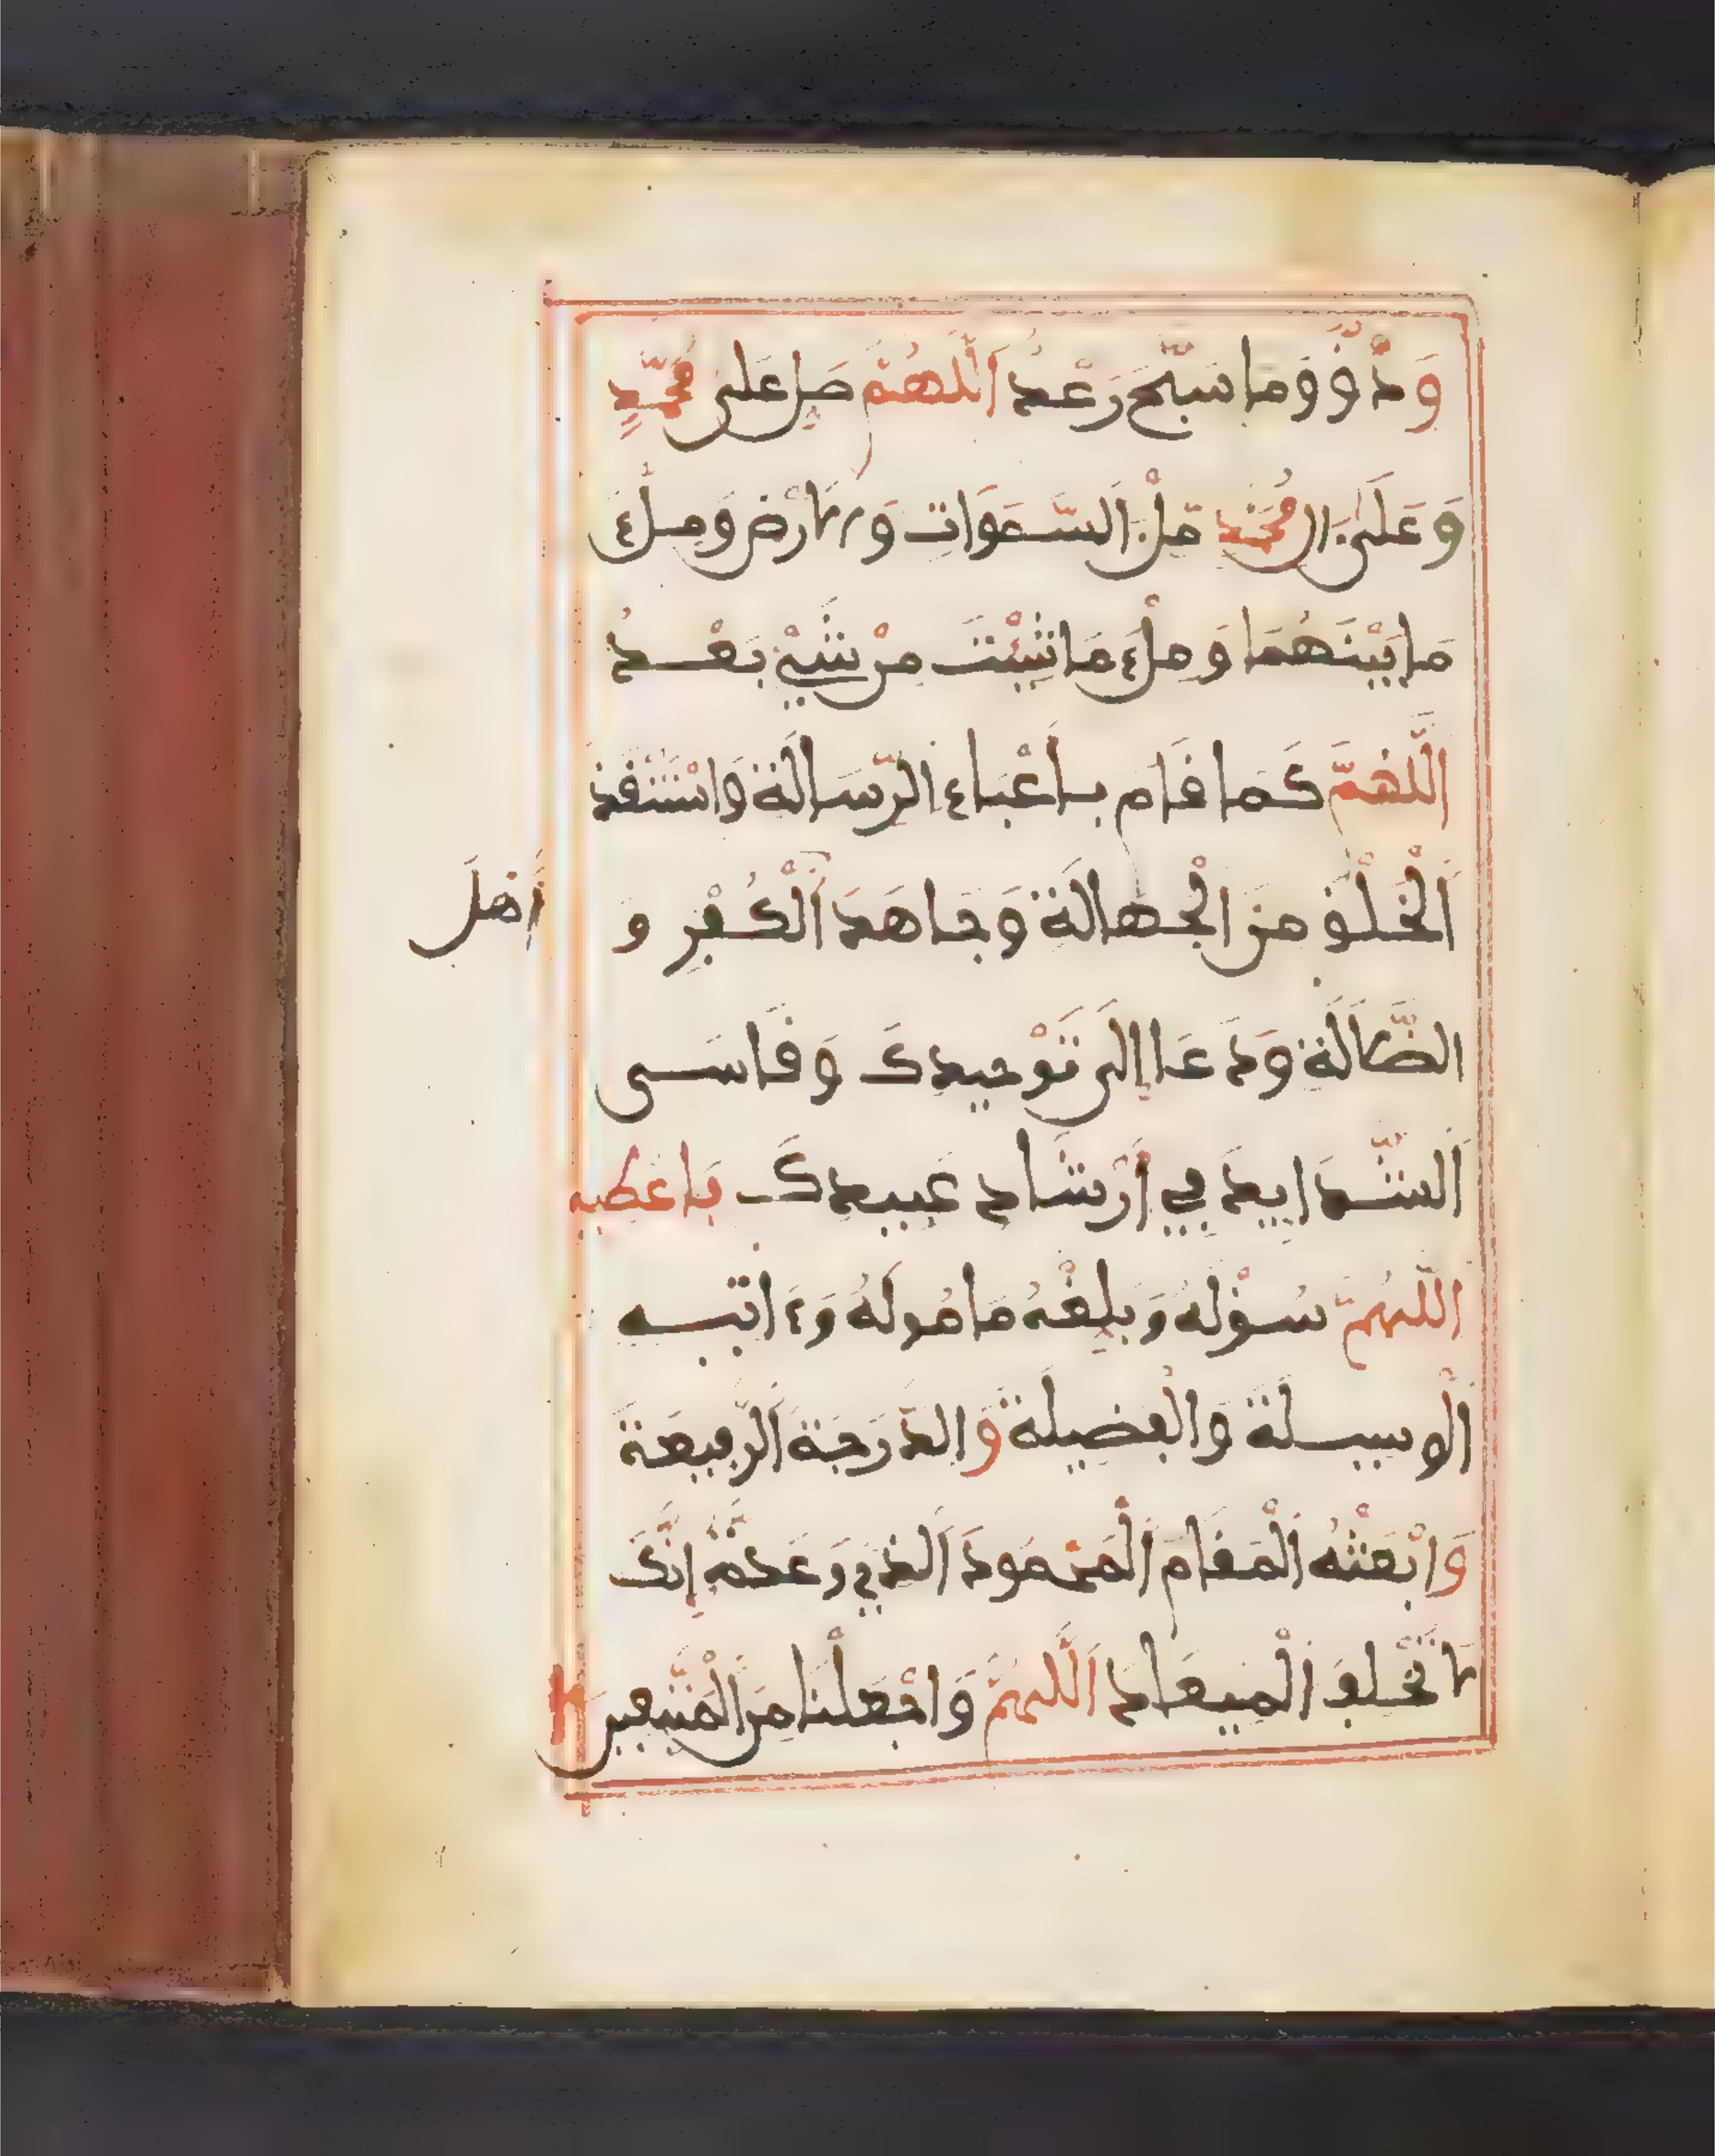 وَدْقٌ وَمَا سَبَّحَ رَعْدُ اَللَّهُمَّ صَلِّ عَلَى مُحَمَّدٍ
وَعَلَى ءَالِ مُحَمَّدٍ مِلْءَ السَّمَوَاتِ وَالارْضِ وَمِلْءَ
مَا بَيْنَهُمَا وَمِلْءَ مَا شِئْتَ مِنْ شَيْءٍ بَعْدُ
اَللَّهُمَّ كَمَا قَامَ بِأَعْبَاءِ الرِّسَالَةِ وَاسْتَنْقَذَ
اَلْخَلْقَ مِنَ الْجَهَالَةِ وَجَاهَدَ اَلْكُفْرِ وَ أَهْلَ
الضَّلَالَةِ وَدَعَا إِلَى تَوْحِيدِكَ وَقَاسَى
اَلشَّدَايِدَ فِي أَرْشَادِ عَبِيدِكَ فَاعْطِهِ
اَللَّهُمَّ سُؤْلَهُ وَبَلِّغْهُ مَامُولَهُ وَءَاتِهِ
اَلْوَسِيلَةَ وَالْفَضِيلَةَ وَالدَّرَجَةَ اَلرَّفِيعَةَ
وَابْعَثْهُ اَلْمَقَامَ اَلْمَحْمُودَ اَلَّذِي وَعَدتَّهُ إِنَّكَ
لَا تُخْلِفُ اَلْمِيعَادَ اَللَّهُمَّ وَاجْعَلْنَا مِنَ الْمُتَّبِعِينَ